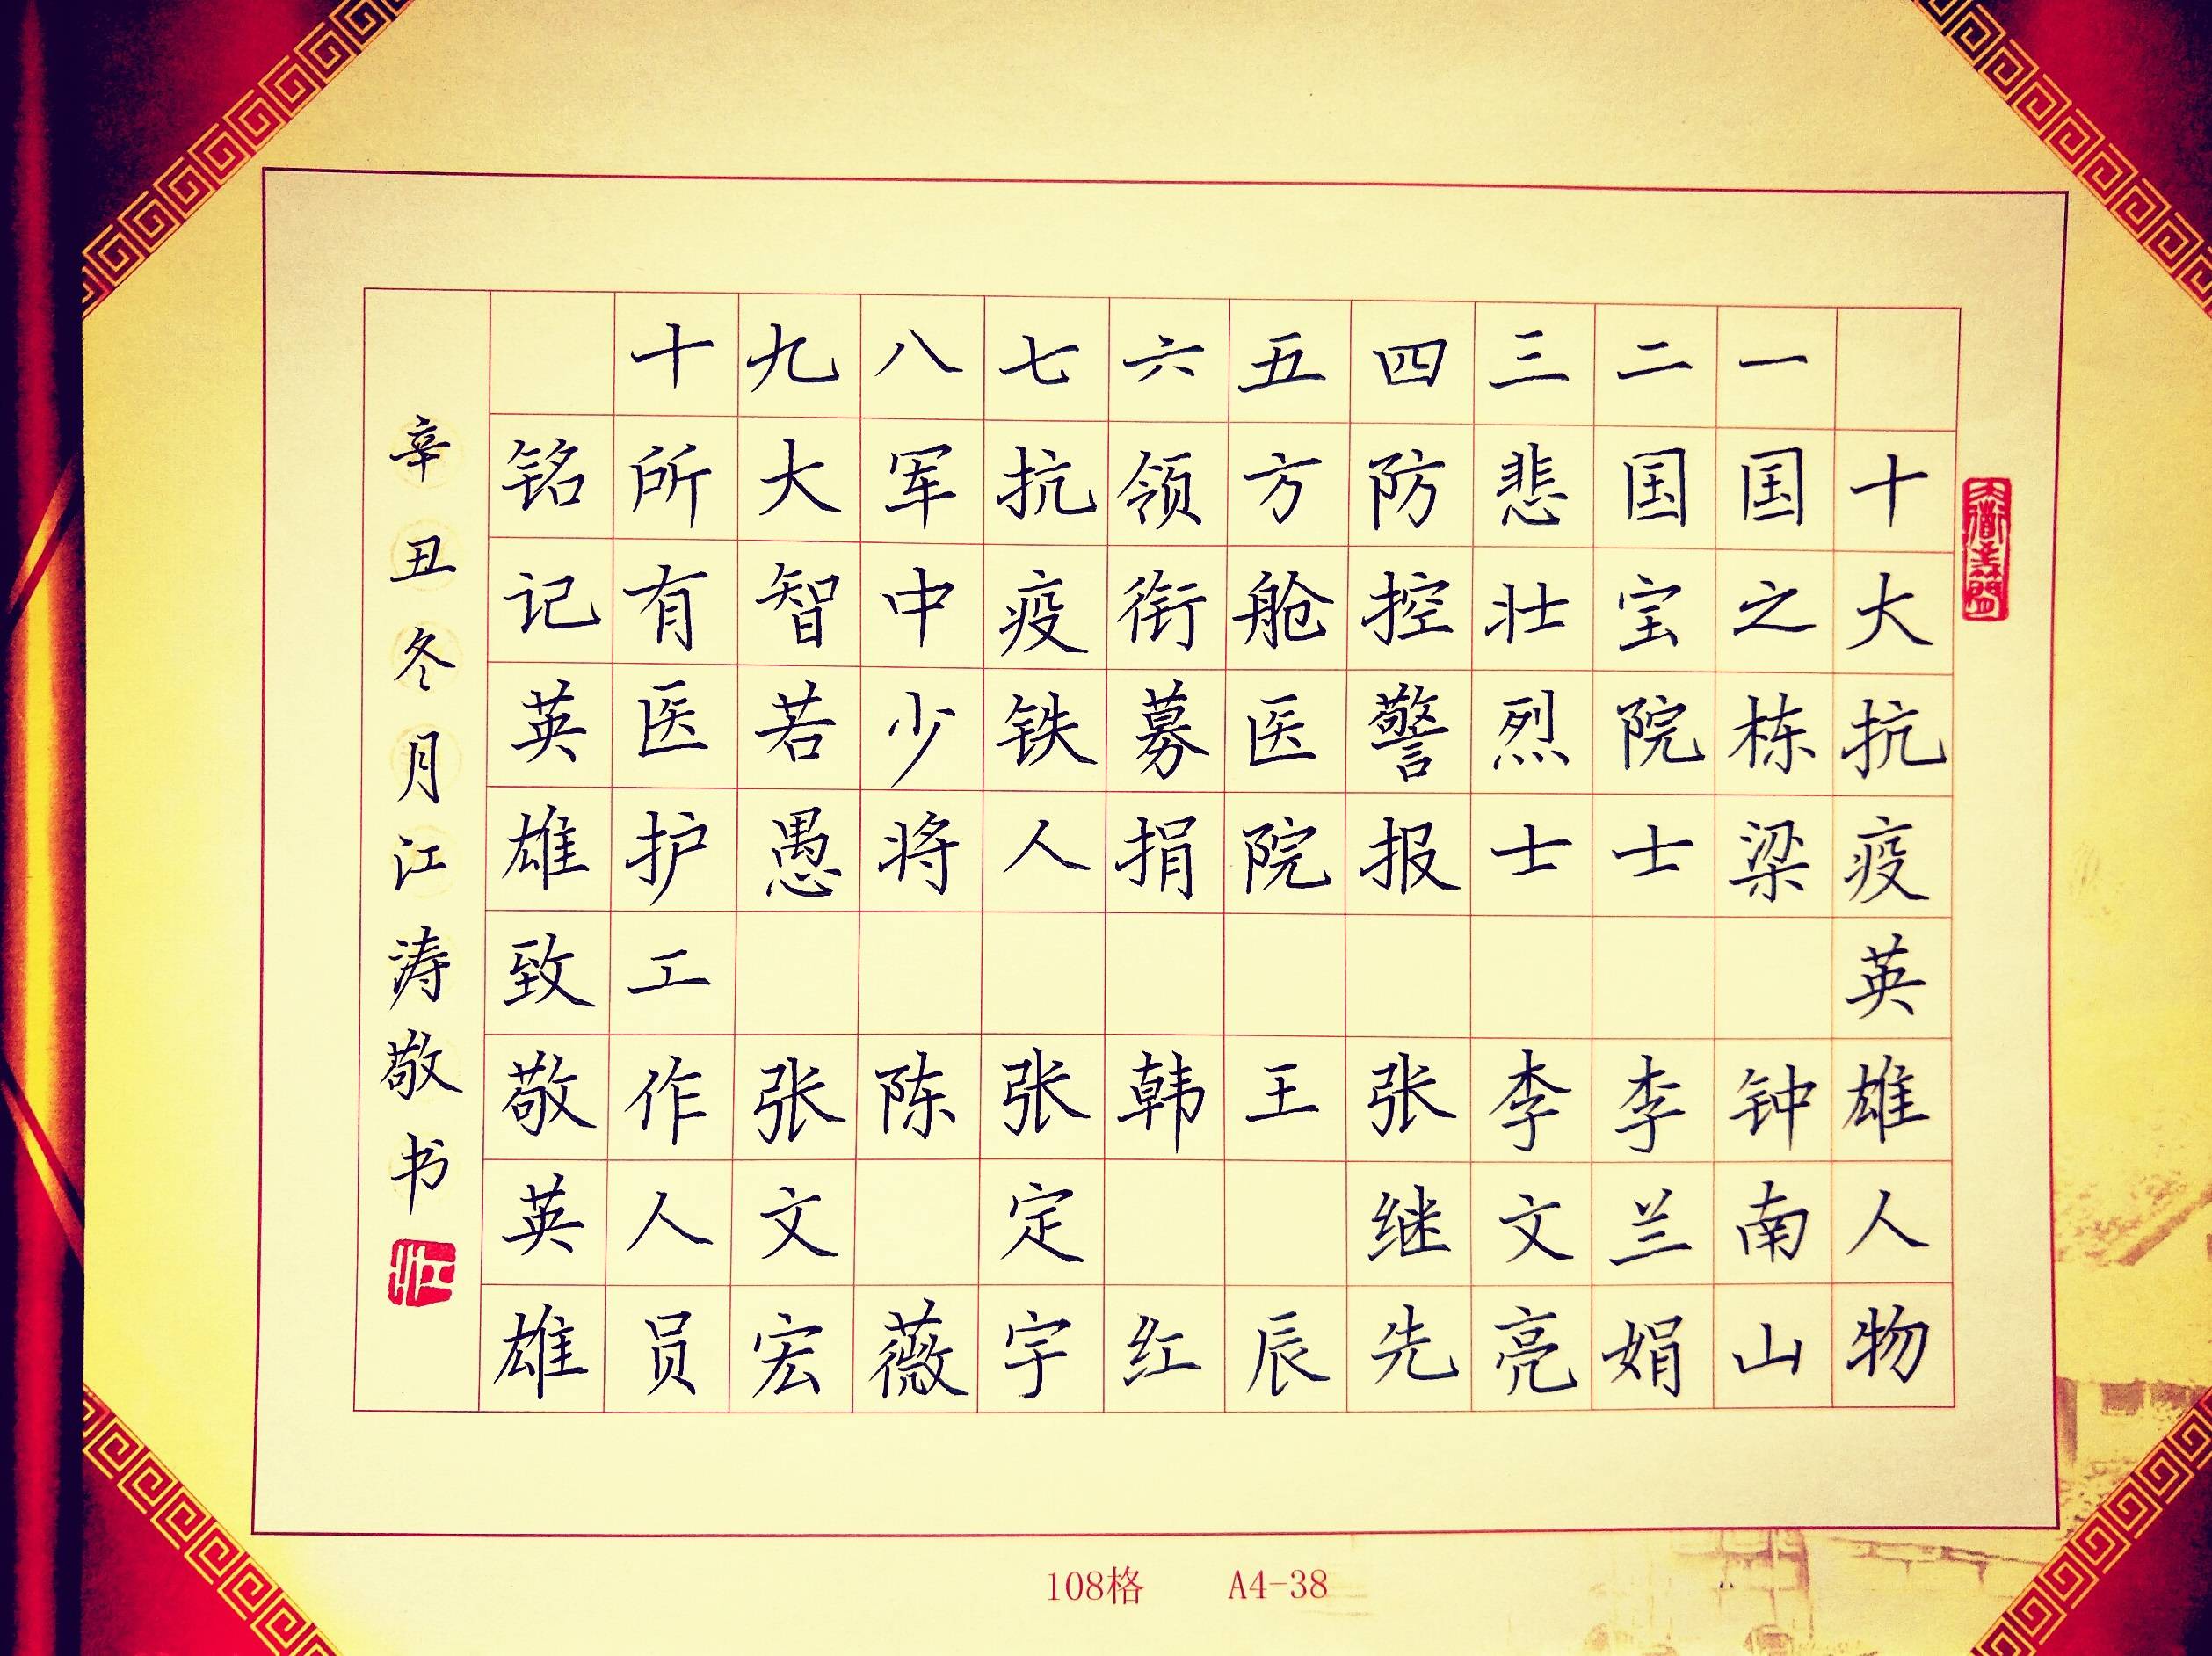 十大抗疫英雄人物
一国之栋梁 钟南山
二国宝院士 李兰娟
三悲壮烈士 李文亮
四防控警报 张继先
五方舱医院 王辰
六领衔募捐 韩红
七抗疫铁人 张定宇
八军中少将 陈薇
九大智若愚 张文宏
十所有医护工作人员
铭记英雄致敬英雄
辛丑冬月江涛敬书
江
108格 A4-38